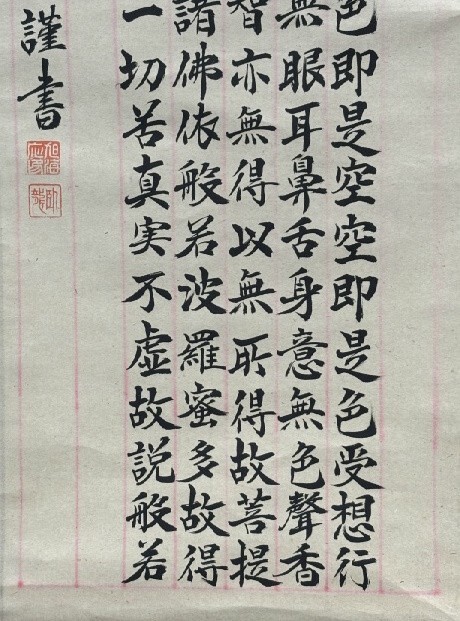 色即是空空即是色受想行
無眼耳鼻舌身意無色聲香
智亦無得以無所得故菩提
諸佛依般若波羅蜜多故得
一切苦真実不虚故説般若
謹書